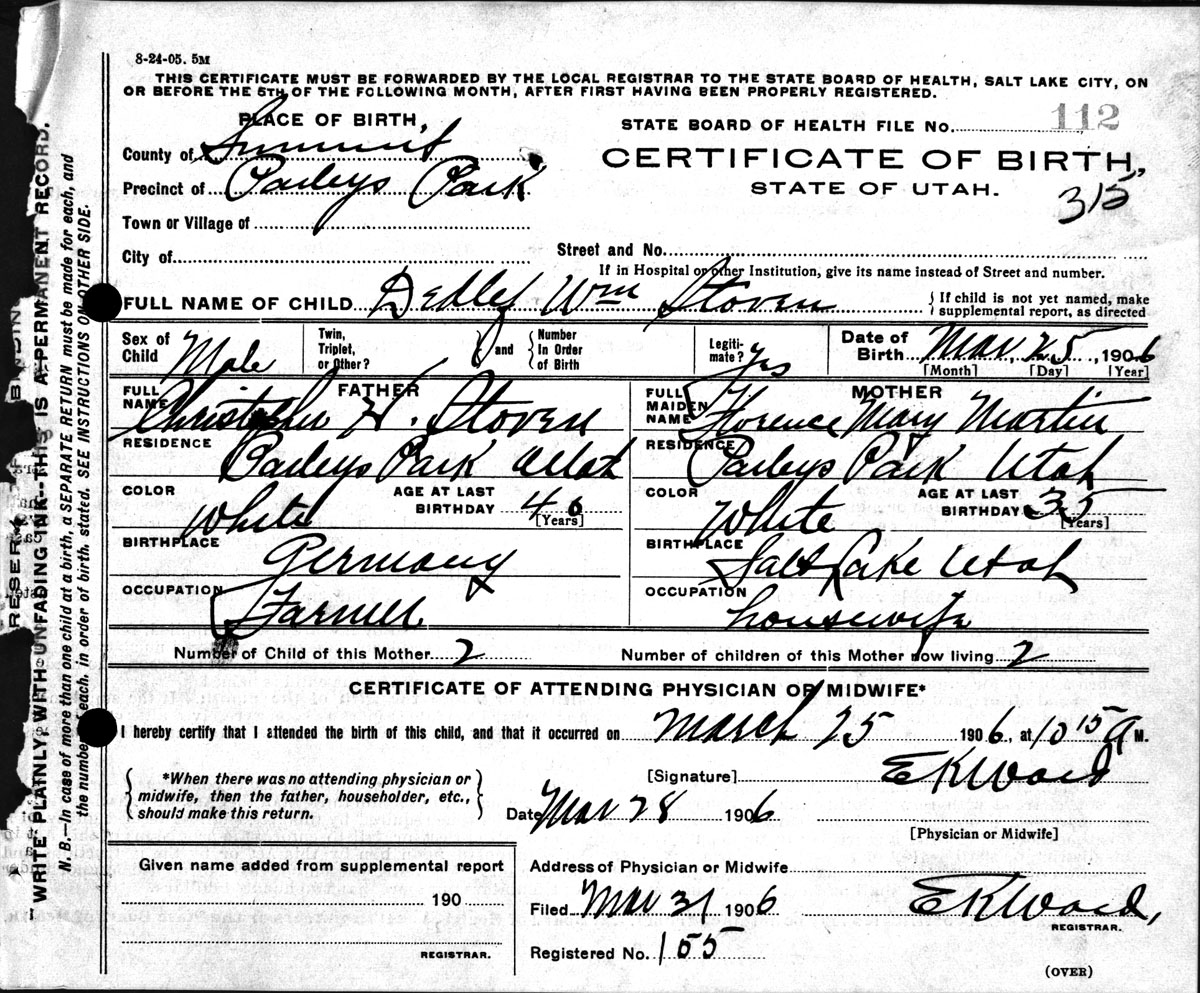 8-24-05. 5M
THIS CERTIFICATE MUST BE FORWARDED BY THE LOCAL REGISTRAR TO THE STATE BOARD OF HEALTH, SALT LAKE CITY, ON
OR BEFORE THE 5TH OF THE FOLLOWING MONTH, AFTER FIRST HAVING BEEN PROPERLY REGISTERED.
PLACE OF BIRTH,
STATE BOARD OF HEALTH FILE No. 112
County of Summit
CERTIFICATE OF BIRTH,
Precinct of Parleys Park
STATE OF UTAH.
315
Town or Village of
City of
Street and No.
If in Hospital or other Institution, give its name instead of Street and number.
FULL NAME OF CHILD Dedley Wm Stoven
{ If child is not yet named, make
supplemental report, as directed
Sex of Child Male
Twin, Triplet, or Other? } and { Number In Order of Birth
Legitimate? Yes
Date of Birth Mar, 25, 1906
[Month] [Day] [Year]
FATHER
FULL NAME Christopher H. Stoven
RESIDENCE
Parleys Park Utah
COLOR White
AGE AT LAST BIRTHDAY 46
[Years]
BIRTHPLACE
Germany
OCCUPATION
Farmer
MOTHER
FULL MAIDEN NAME Florence Mary Martin
RESIDENCE
Parleys Park Utah
COLOR White
AGE AT LAST BIRTHDAY 35
[Years]
BIRTHPLACE
Salt Lake Utah
OCCUPATION
housewife
Number of Child of this Mother 2
Number of children of this Mother now living 2
CERTIFICATE OF ATTENDING PHYSICIAN OR MIDWIFE*
I hereby certify that I attended the birth of this child, and that it occurred on March 25 1906, at 10 15 A M.
{ *When there was no attending physician or
midwife, then the father, householder, etc.,
should make this return. }
[Signature] E K Ward
Date Mar 28 1906
[Physician or Midwife]
Given name added from supplemental report
190
REGISTRAR.
Address of Physician or Midwife
Filed Mar 31 1906 E K Ward,
REGISTRAR.
Registered No. 155
(OVER)
WRITE PLAINLY, WITH UNFADING INK--THIS IS A PERMANENT RECORD.
N. B.—In case of more than one child at a birth, a SEPARATE RETURN must be made for each, and
the number of each, in order of birth, stated. SEE INSTRUCTIONS ON OTHER SIDE.